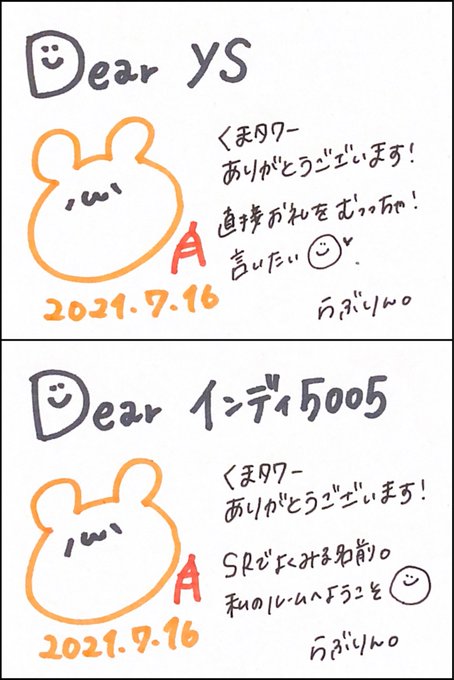 Dear YS
くまタワー
ありがとうございます!
直接お礼をむっっちゃ!
言いたい
2021.7.16
らぶりん。
Dear インディ5005
くまタワー
ありがとうございます!
SRでよくみる名前。
私のルームへようこそ
2021.7.16
らぶりん。